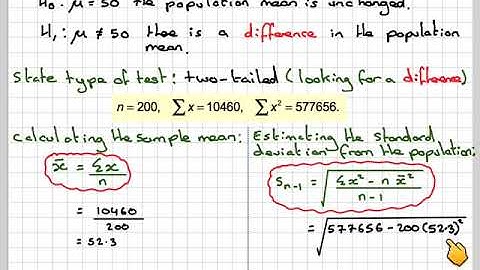 H₀ : μ = 50 the population mean is unchanged.
H₁ : μ ≠ 50 there is a difference in the population
mean.
State type of test : two-tailed (looking for a difference)
n = 200, ∑x = 10460, ∑x² = 577656.
Calculating the sample mean:
x̄ = Σx/n
= 10460/200
= 52.3
Estimating the standard
deviation from the population:
Sₙ₋₁ = √((Σx² − n x̄²)/(n−1))
= √(577656 − 200(52.3)²